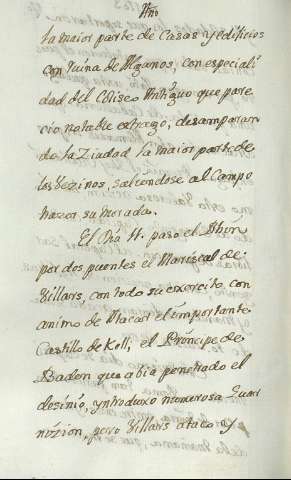 Año
la maior parte de Casas y edificios
con ruina de Algunos, con especiali
dad del Coliseo Antiguo que pade
cio notable estrago, desamparan
do la Ziudad la maior parte de
los Vezinos, saliendose al Campo
hazer su morada.
El Dia 11. paso el Rhin
por dos puentes el Mariscal de
Villars, con todo su exercito, con
animo de Atacar el importante
Castillo de Kell, el Principe de
Badon que abia penetrado el
desinio, yntroduxo numerosa Guar
nizion, pero Villars ataco y